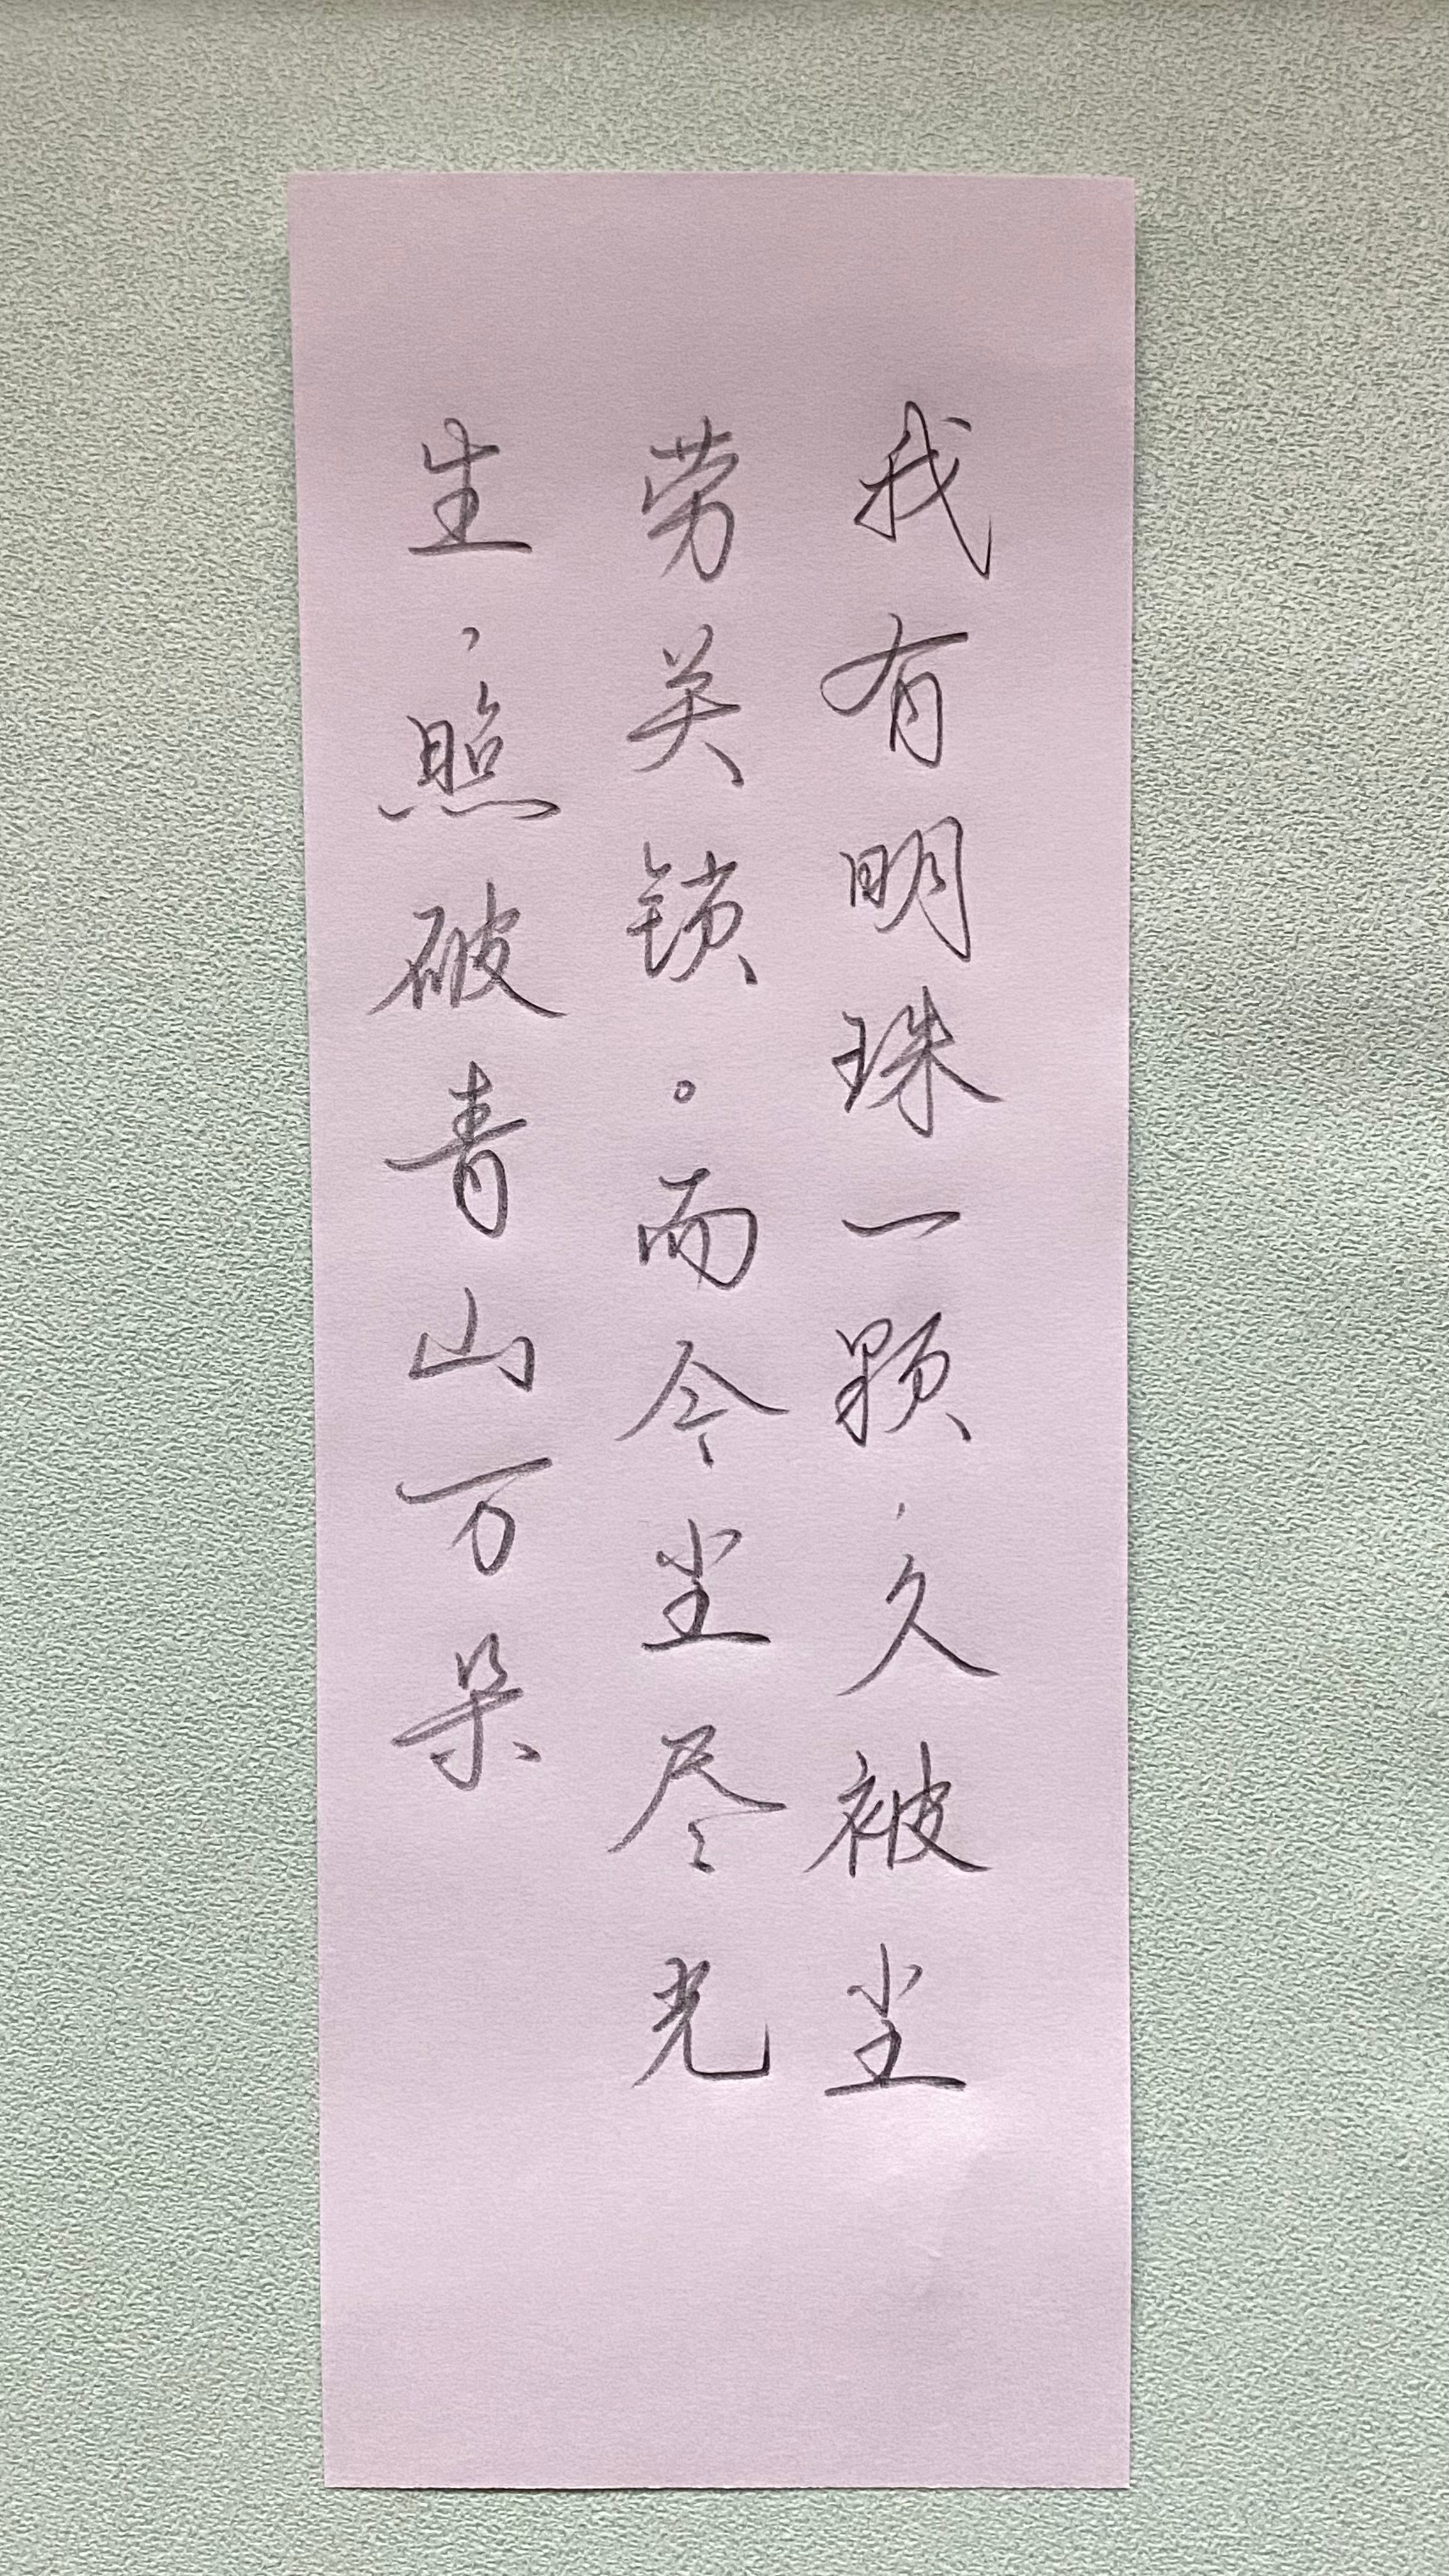 我有明珠一颗，久被尘
劳关锁。而今尘尽光
生，照破青山万朵